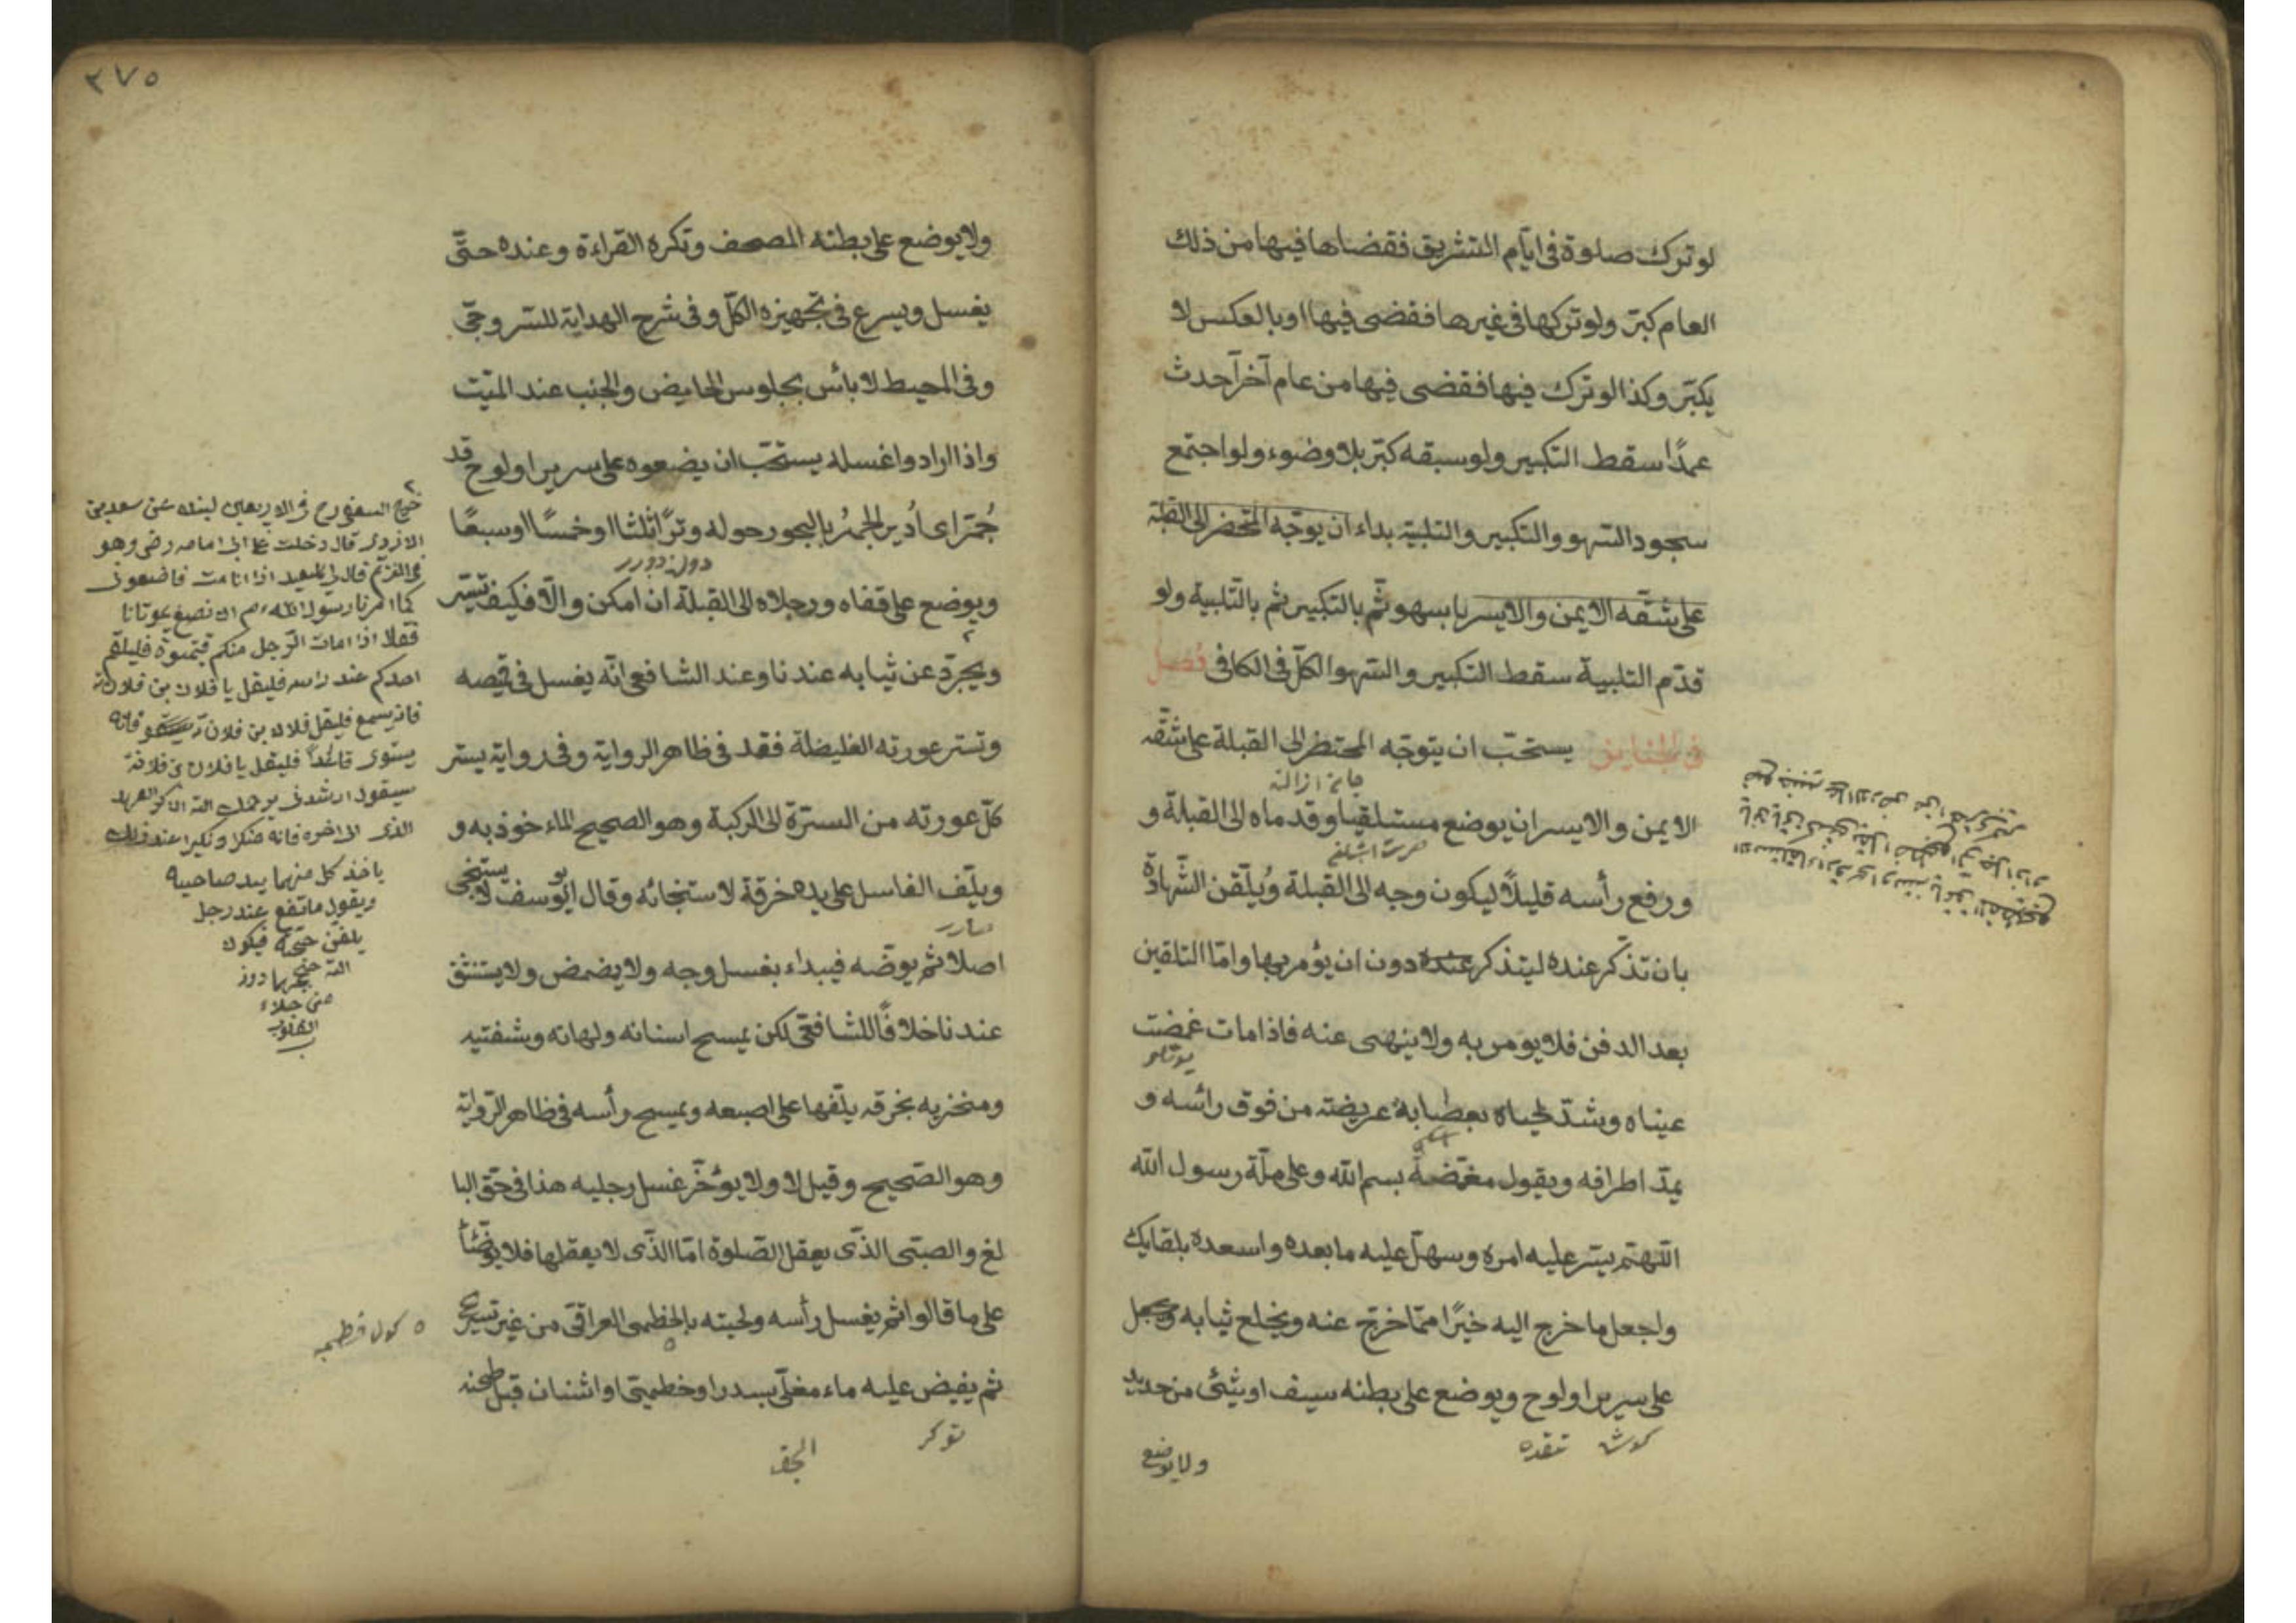 لو ترك صلوة فى ايّام التشريق فقضاها فيها من ذلك
العام كبّر ولو تركها فى غيرها فقضى فيها او بالعكس لا
يكبّر وكذا لو ترك فيها فقضى فيها من عام آخر آحدث
عمدًا سقط التكبير ولو سبقه كبّر بلا وضوء ولو اجتمع
سجود السّهو والتكبير والتلبية بداء ان يوجّه المحتضر الى القبلة
على شقّه الايمن والايسر يا بسهو ثمّ بالتكبير ثم بالتلبية ولو
قدّم التلبية سقط التكبير والسّهو الكلّ فى الكافى فصل
فى الجنايز يستحبّ ان يتوجّه المحتضر الى القبلة على شقّه
الايمن والايسر ان يوضع مستلقيا وقدماه الى القبلة و
ورفع رأسه قليلًا ليكون وجه الى القبلة ويُلقّن الشّهادة
بان تذّكر عنده ليتذكر عنده دون ان يؤمر بها وامّا التلقين
بعد الدفن فلا يومر به ولا ينهى عنه فاذا مات غمضت
عيناه وشدّ لحياه بعصابة عريضة من فوق رائسه و
يمدّ اطرافه ويقول مغمّضهُ بسم الله وعلى ملّة رسول الله
اللّهمّ يسّر عليه امره وسهّل عليه ما بعده واسعده بلقايك
واجعل ما خرج اليه خيرًا ممّا خرج عنه ويخلع ثيابه ويجعل
على سرير او لوح ويوضع على بطنه سيف او شئ من حديد
ولا يوضع
٣٧٥
ولا يوضع على بطنه المصحف وتكره القراءة وعنده حتّى
يغسل ويسرع فى تجهيزه الكلّ وفى شرح الهداية للسروجّى
وفى المحيط لا بائس بجلوس الحايض والجنب عند الميّت
واذا ارادوا غسله يستحّب ان يضعوه على سرير او لوح قد
جُمّر اى اُدير المجمرُ بالبجور حوله وترًا ثلثا او خمسًا او سبعًا
ويوضع على قفاه ورجلاه الى القبلة ان امكن والّا فكيف تيسّر
ويجرّد عن ثيابه عندنا وعند الشافعى انّه يغسل فى قميصه
وتستر عورته الغليضلة فقد فى ظاهر الرواية وفى رواية يستر
كلّ عورته من السترّة الى الركبة وهو الصحيح الماءخوذ به و
ويلّف الغاسل على يده خرقة لاستنجائه وقال ابو يوسف لا يستنجى
اصلا ثم يوضّه فيبداء بغسل وجه ولا يضمض ولا يستنثق
عندنا خلافًا للشافعّى لكن يمسح اسنانه ولهاته وشفتيه
ومنخريه بخرقه يلّفها على اصبعه ويمسح رأسه فى ظاهر الرّواية
وهو الصّحيح وقيل لا ولا يؤخّر غسل رجليه هذا فى حقّ البا
لغ والصبّى الذّى يعقل الصّلوة امّا الذّى لا يعقلها فلا يوضّئأ
على ما قالوا ثم يغسل رأسه ولحيته بالخطمى العراقّى من غير تسريح
ثم يفيض عليه ماء مغلّى بسدر او خطمىّ او اشنان قبل طحنه
الازدى قال دخلت على ابى امامه رضى وهو
كما امرنا رسول الله
فقال اذا مات الرّجل منكم
احدكم عند راسه فليقل يا فلان بن فلانة
فانه يسمع فليقل فلان بن فلان
يستوى قاعداً فليقل يا فلان بن فلانة
سيقول ارشدنى يرحمك الله
الذى الى اخره فانه منكر ونكيرا عند ذلك
ياخذ كل منهما بيد صاحبه
ويقول ما نقع عند رجل
يلقن حجته فيكون
الله